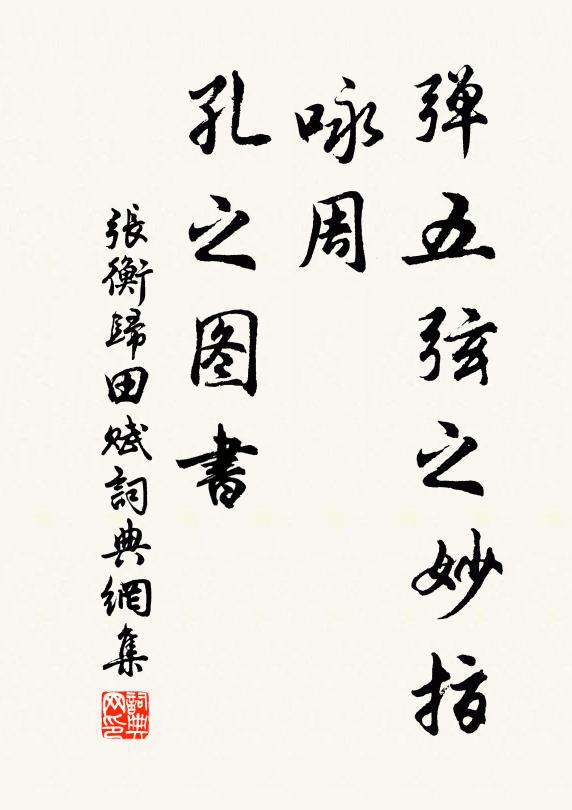 弹五弦之妙指
咏周
孔之图書
張衡歸田赋詞典網集
詞典网印